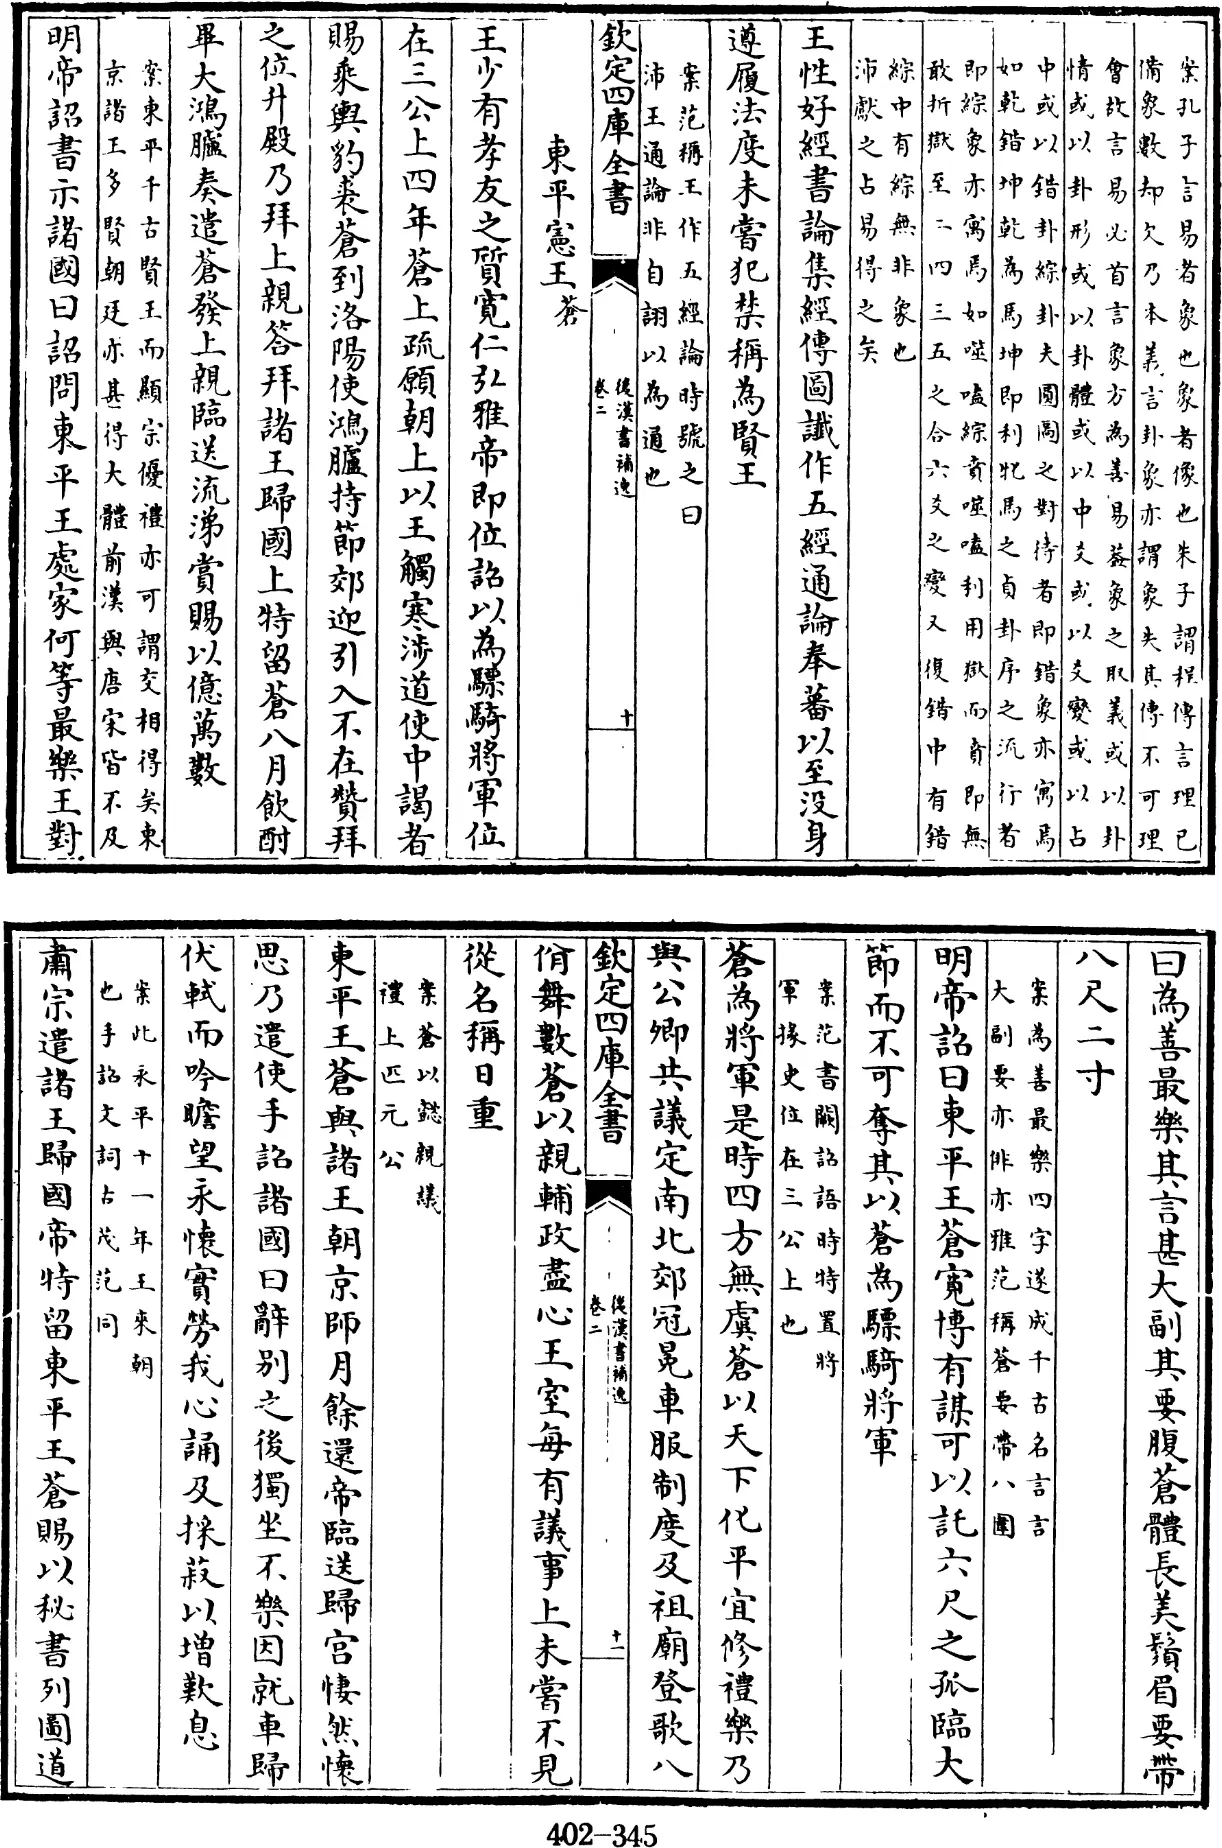 案孔子言易者象也象者像也朱子謂程傳言理已
備象數却欠乃本義言卦象亦謂象失其傳不可理
會故言易必首言象方為善易葢象之取義或以卦
情或以卦形或以卦體或以中爻或以爻變或以占
中或以錯卦綜卦夫圓圖之對待者即錯象亦寓焉
如乾錯坤乾為馬坤即利牝馬之貞卦序之流行者
即綜象亦寓焉如噬嗑綜賁噬嗑利用獄而賁即無
敢折獄至二四三五之合六爻之變又復錯中有錯
綜中有綜無非象也
沛獻之占易得之矣
王性好經書論集經傳圖讖作五經通論奉蕃以至没身
遵履法度未嘗犯禁稱為賢王
案范稱王作五經論時號之曰
沛王通論非自詡以為通也
欽定四庫全書
後漢書補逸
卷二
十
東平憲王蒼
王少有孝友之質寛仁弘雅帝即位詔以為驃騎將軍位
在三公上四年蒼上疏願朝上以王觸寒涉道使中謁者
賜乘輿豹裘蒼到洛陽使鴻臚持節郊迎引入不在贊拜
之位升殿乃拜上親答拜諸王歸國上特留蒼八月飲酎
畢大鴻臚奏遣蒼發上親臨送流涕賞賜以億萬數
案東平千古賢王而顯宗優禮亦可謂交相得矣東
京諸王多賢朝廷亦甚得大體前漢與唐宋皆不及
明帝詔書示諸國曰詔問東平王處家何等最樂王對
曰為善最樂其言甚大副其要腹蒼體長美鬚眉要帶
八尺二寸
案為善最樂四字遂成千古名言言
大副要亦俳亦雅范稱蒼要帶八圍
明帝詔曰東平王蒼寛博有謀可以託六尺之孤臨大
節而不可奪其以蒼為驃騎將軍
案范書闕詔語時特置將
軍掾史位在三公上也
蒼為將軍是時四方無虞蒼以天下化平宜修禮樂乃
與公卿共議定南北郊冠冕車服制度及祖廟登歌八
欽定四庫全書
後漢書補逸
卷二
十一
佾舞數蒼以親輔政盡心王室每有議事上未嘗不見
從名稱日重
案蒼以懿親議
禮上匹元公
東平王蒼與諸王朝京師月餘還帝臨送歸宫悽然懷
思乃遣使手詔諸國曰辭别之後獨坐不樂因就車歸
伏軾而吟瞻望永懷實勞我心誦及採菽以增歎息
案此永平十一年王來朝
也手詔文詞古茂范同
肅宗遣諸王歸國帝特留東平王蒼賜以秘書列圖道
402-345